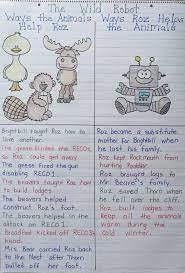 The Wild Robot
Ways the Animals
Help Roz
Ways Roz Helps
the Animals
Brightbill taught Roz how to
love another.
The geese blinded the RECOs
so Roz could get away.
The geese fired the gun
disabling RECO 1.
The beavers taught Roz how
to build lodges.
The beavers helped
construct Roz's foot.
The beavers helped in the
attack on RECO 1.
Broadfoot kicked off RECO 3's
head.
Mrs. Bear carried Roz back
to the Nest after Thorn
pulled off her foot.
Roz became a substitute
mother for Brightbill when
he lost his family.
Roz kept Rockmouth from
hurting Paddler.
Roz brought logs to
Mr. Beaver's family.
Roz saved Thorn from the
mudslide.
Roz built lodges to
help keep all animals
warm during the
cold winter.